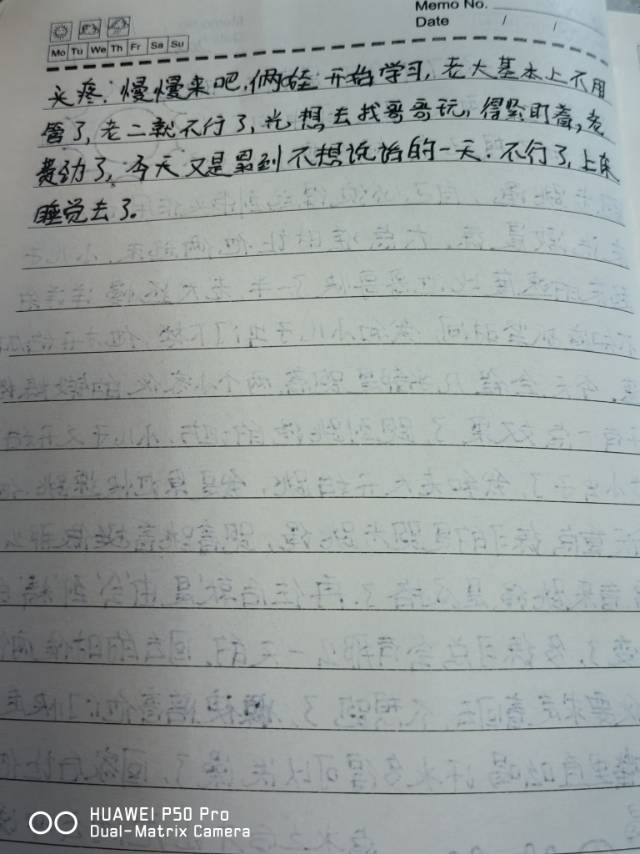 Memo No.
Date / /
Mo Tu We Th Fr Sa Su
头疼,慢慢来吧,俩娃开始学习,老大基本上不用
管了,老二就不行了,光想去找哥哥玩,得紧盯着,老
费劲了,今天又是累到不想说话的一天.不行了,上床
睡觉去了。
HUAWEI P50 Pro
Dual-Matrix Camera